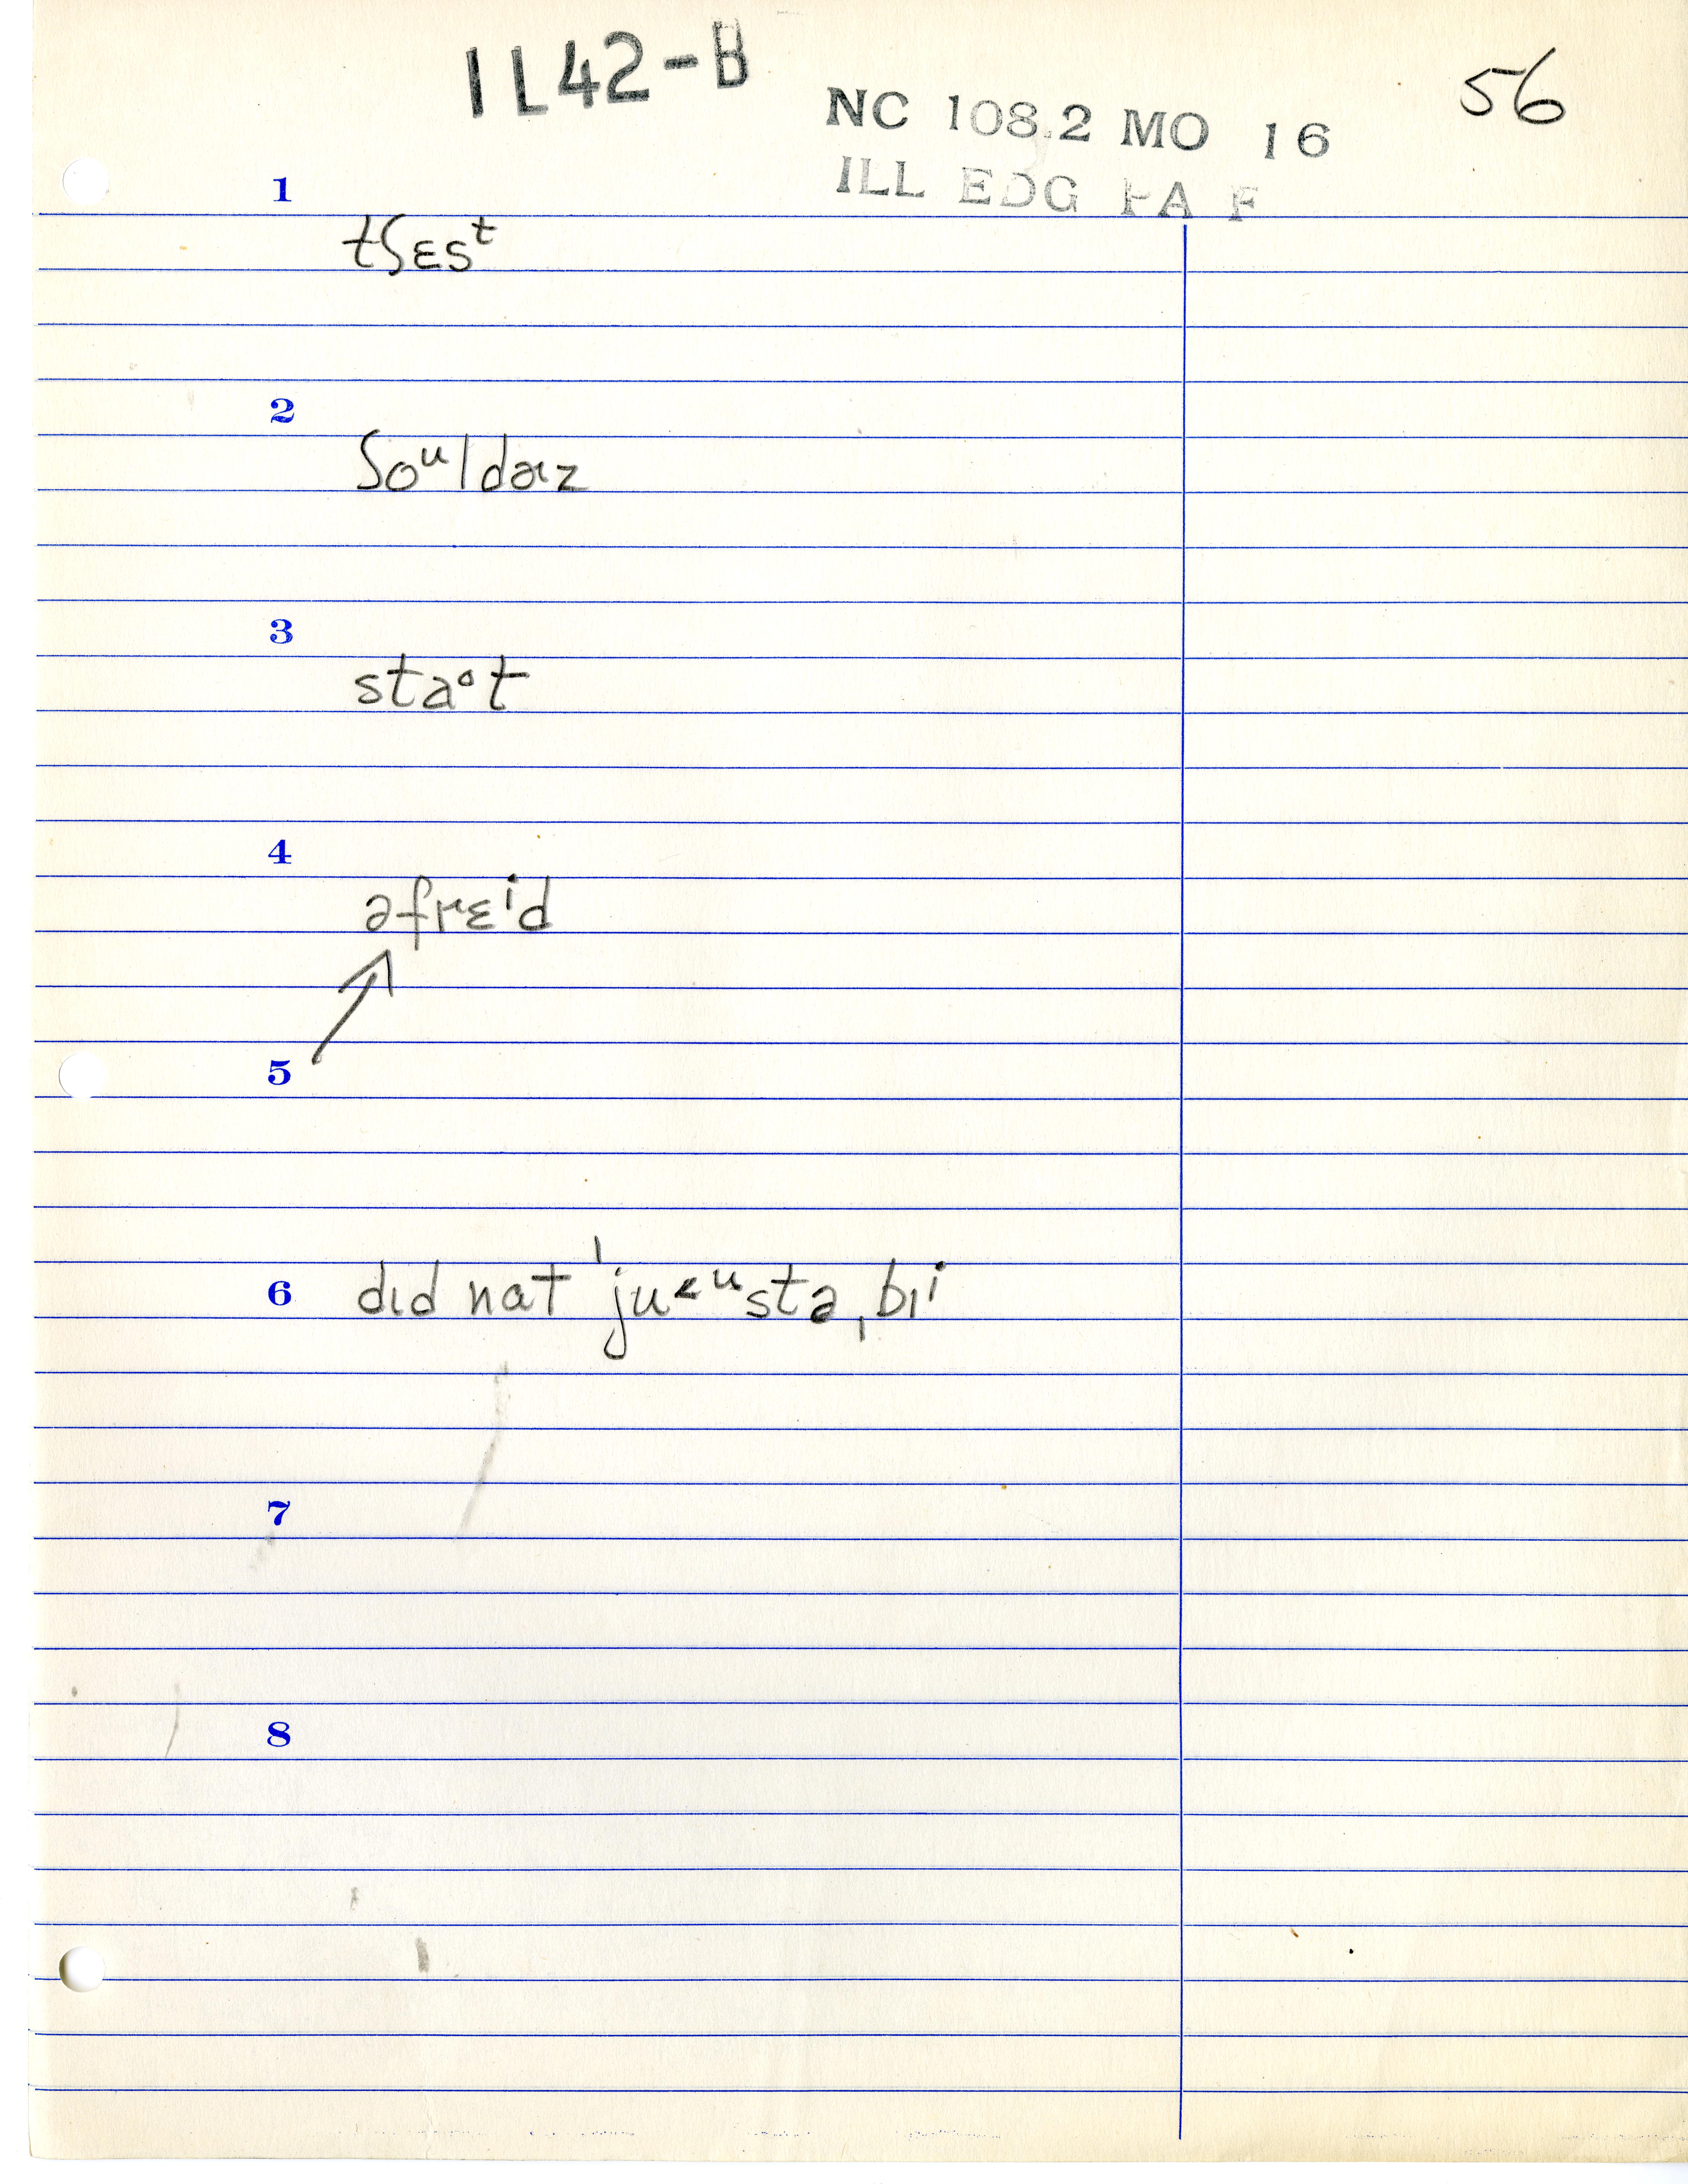 1L42-B
56
NC 108.2 MO 16
ILL EDG PA F
1
tʃɛsᵗ
2
ʃoᵘldɚz
3
staᵒt
4
əfrɛⁱd
5
6 dɪd nat ˈju<ᵘstəˌbɪⁱ
7
8